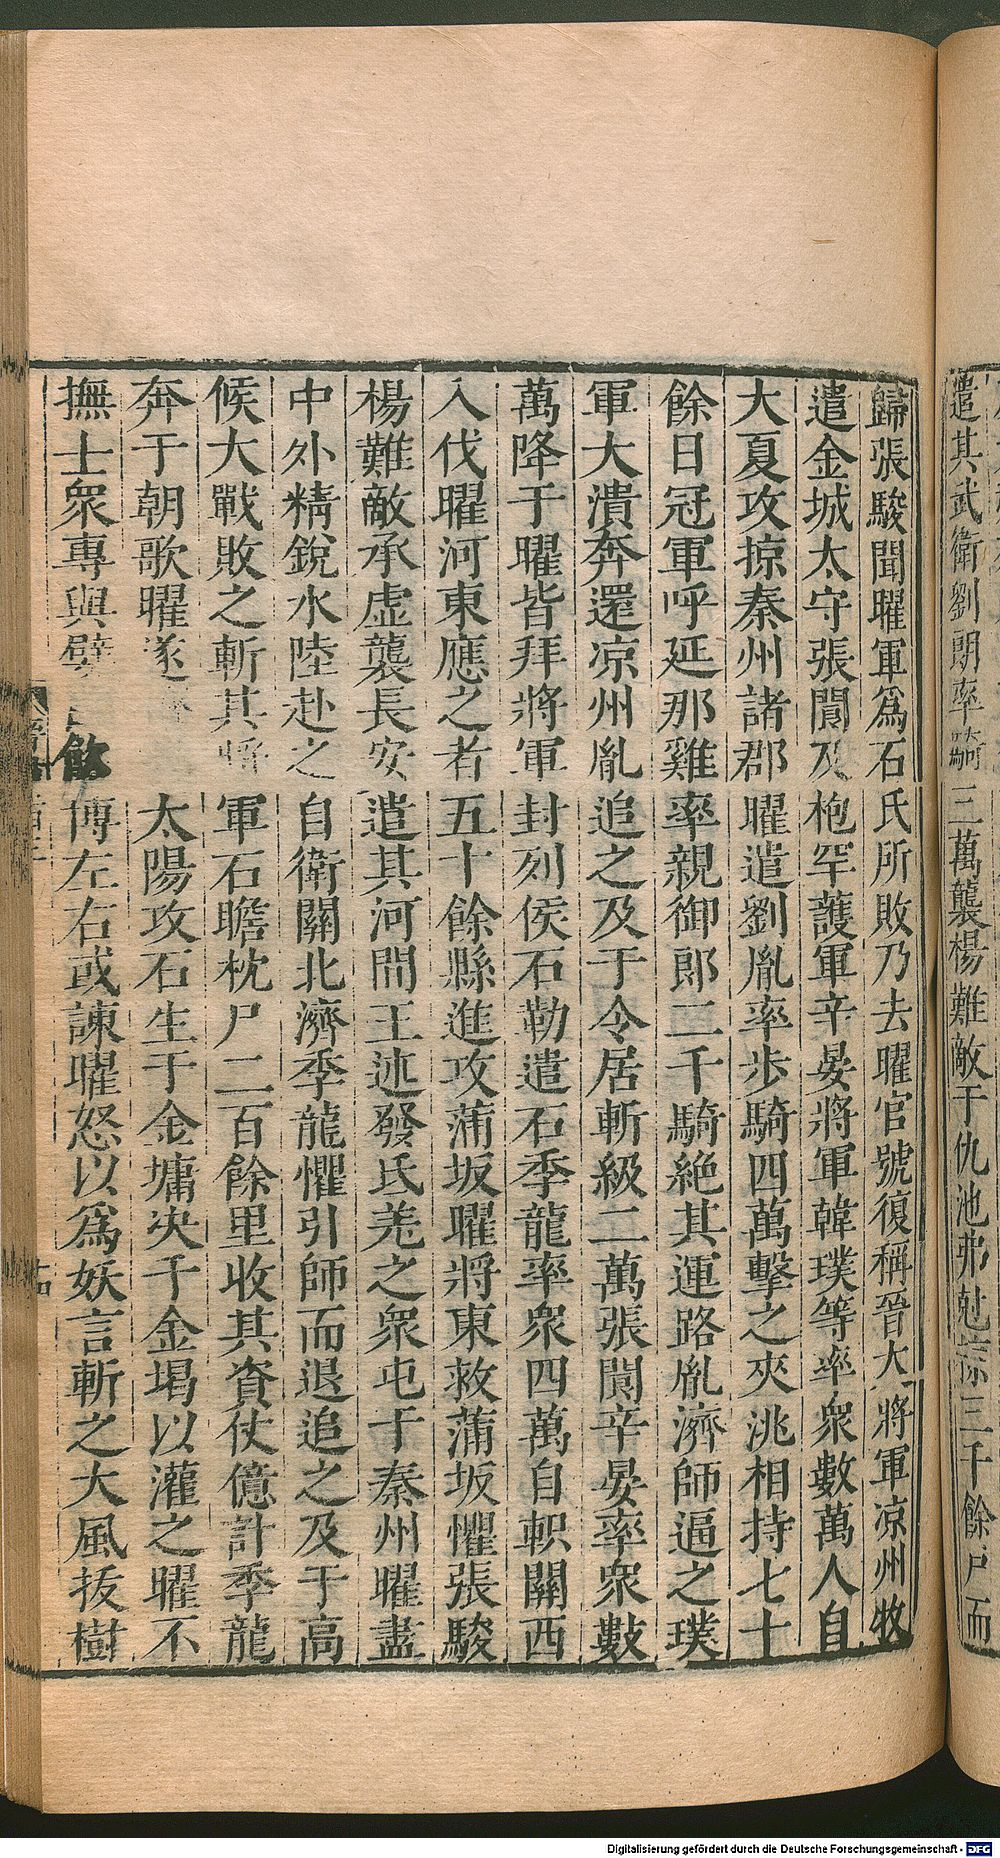 遣其武衛劉朗率騎三萬襲楊難敵于仇池弗尅掠三千餘户而
歸張駿聞曜軍爲石氏所敗乃去曜官號復稱晉大將軍凉州牧
遣金城太守張閬及枹罕護軍辛晏將軍韓璞等率衆數萬人自
大夏攻掠秦州諸郡曜遣劉胤率步騎四萬擊之夾洮相持七十
餘日冠軍呼延那雞率親御郎二千騎絶其運路胤濟師逼之璞
軍大潰奔還凉州胤追之及于令居斬級二萬張閬辛晏率衆數
萬降于曜皆拜將軍封列侯石勒遣石季龍率衆四萬自軹關西
入伐曜河東應之者五十餘縣進攻蒲坂曜將東救蒲坂懼張駿
楊難敵承虚襲長安遣其河間王述發氐羗之衆屯于秦州曜盡
中外精銳水陸赴之自衛關北濟季龍懼引師而退追之及于高
候大戰敗之斬其將軍石瞻枕尸二百餘里收其資仗億計季龍
奔于朝歌曜遂太陽攻石生于金墉决千金堨以灌之曜不
撫士衆專與嬖飲博左右或諫曜怒以爲妖言斬之大風拔樹
Digitalisierung gefördert durch die Deutsche Forschungsgemeinschaft - DFG